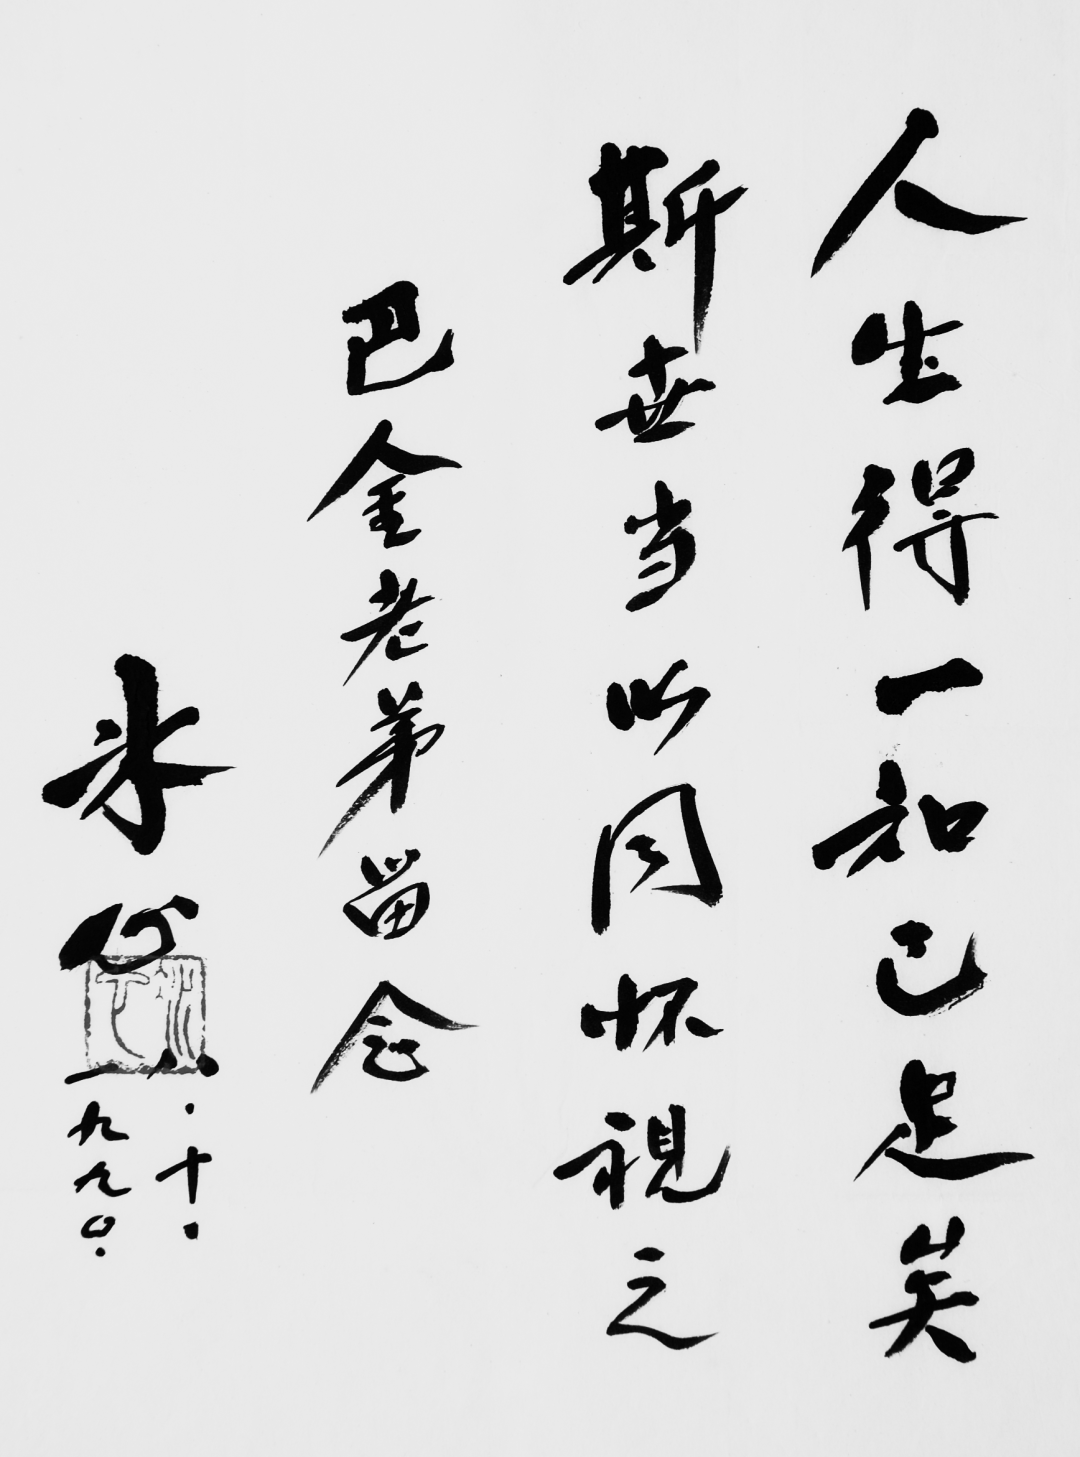 人生得一知己足矣
斯世当以同怀視之
巴金老弟留念
氷心
一九九〇.
八.十.